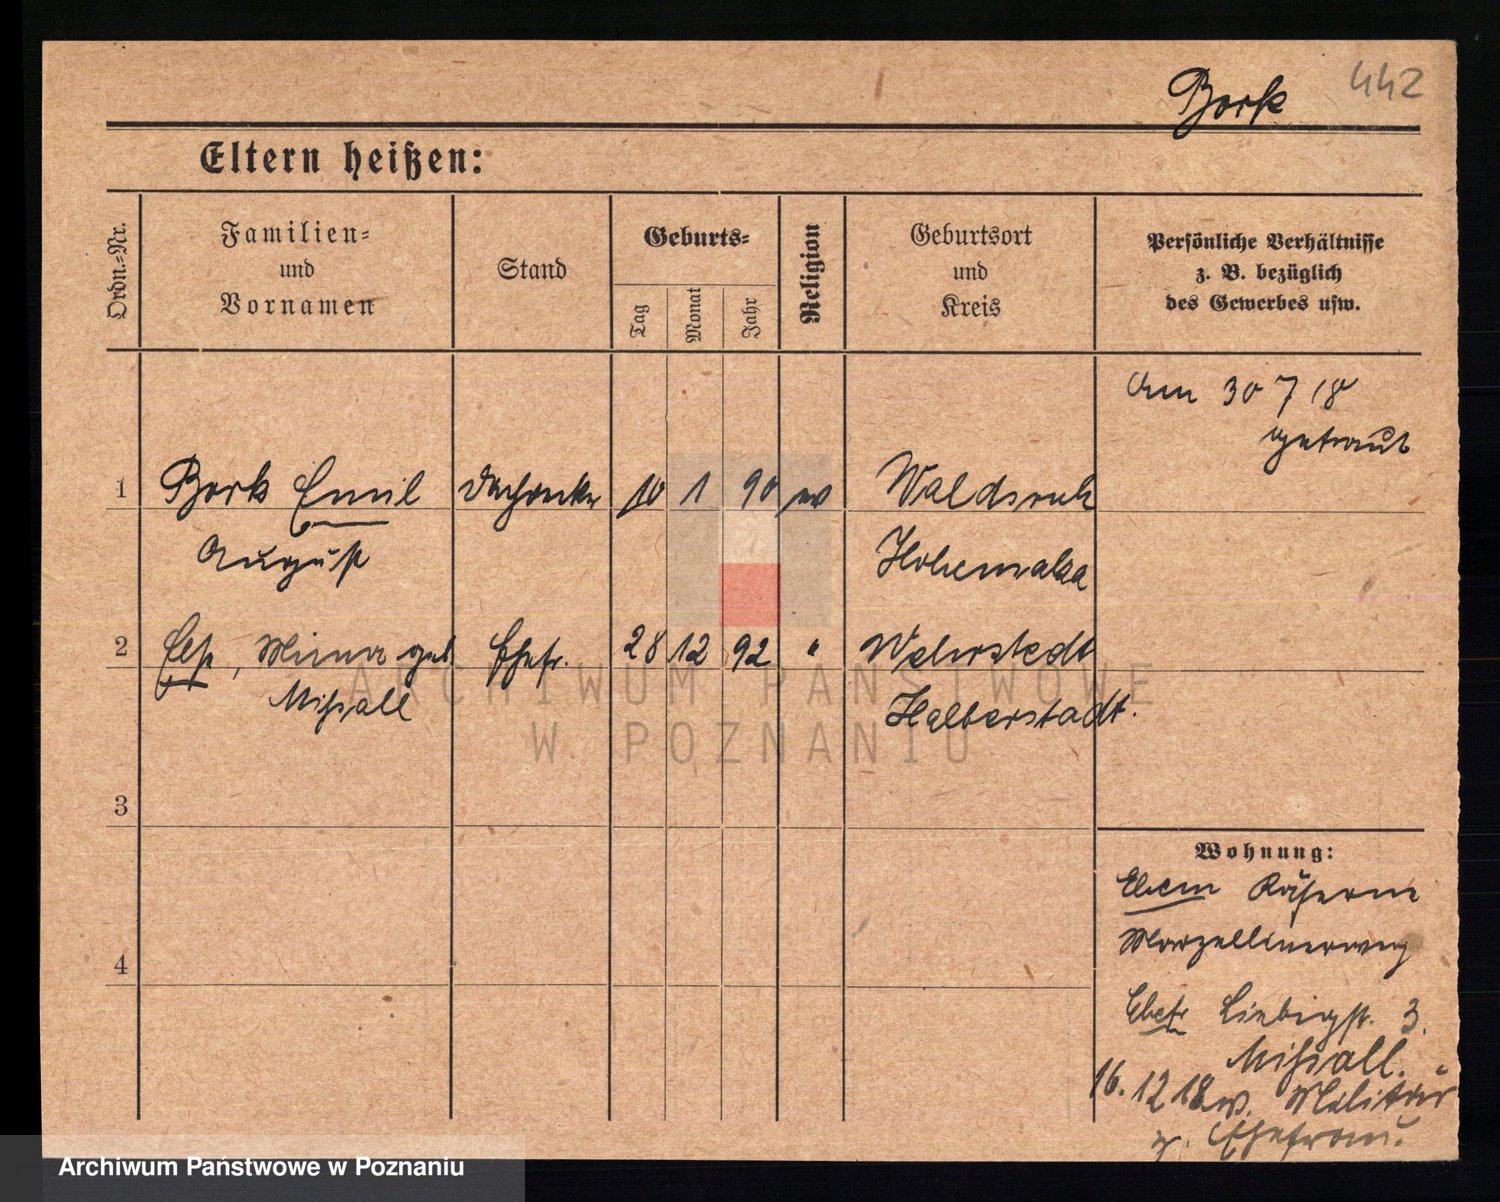 Bork 442
Eltern heißen:
Ordn.=Nr.
Familien=
und
Vornamen
Stand
Geburts=
Tag
Monat
Jahr
Religion
Geburtsort
und
Kreis
Persönliche Verhältnisse
z. B. bezüglich
des Gewerbes usw.
Am 30 7 18
getraut
1 Bork Emil Dachdecker 10 1 90 ev Waldsruh
August Hohensalza
2 Minna geb. Ehefr. 28 12 92 " Wehrstedt
Halberstadt.
3
4
Wohnung:
Ehem Kaserne
Ehefr Liebigstr. 3.
16. 12 18 v. Militär
z. Ehefrau.
ARCHIWUM PAŃSTWOWE
W POZNANIU
Archiwum Państwowe w Poznaniu